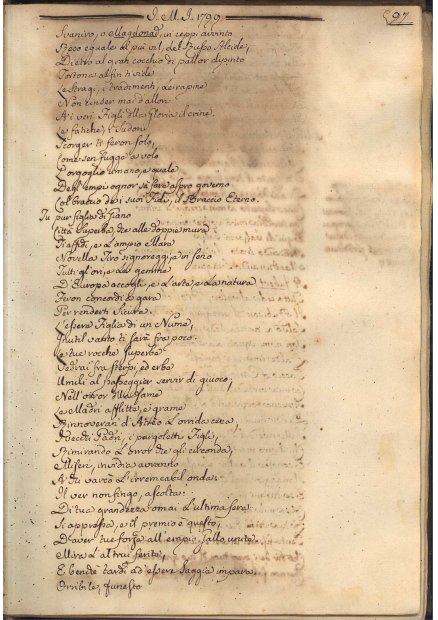 J. M. J. 1799.
97
Svaniro, o Magdonad, in ceppi avvinto
Dietro al gran cocchio di pallor dipinto
Tortona al fin ti vide
Le stragi, i tradimenti, le rapine
Non cinser mai d'allori
A i veri Figli della Gloria il crine.
Le fatiche, i sudori
Scorger ti feron solo,
Come sen fugge a volo
L'orgoglio umano, e quale
Degl'empi ognor sà fare aspro governo
Col braccio de i suoi Fidi, il Braccio Eterno.
Tu pur figlia di Giano
Città superba, che alle doppie mura
T'affidi, e l'ampio Mare
Novella Tiro signoreggi, e in seno
Tutti gl'ori, e le gemme
D'Europa accogli, e l'arte, e la natura
Feron concordi a gara
Per renderti sicura.
L'esser Figlia di un Nume,
Inutil vanto ti sarà fra poco.
Le tue rocche superbe
Vedrai fra sterpi ed erbe
Umili al passeggier servir di giuoco,
Nell'orror della fame
Le Madri afflitte, e grame
Rinnoveran d'Atreo l'orrida cena,
I vecchi Padri, i pargoletti Figli,
Rimirando l'orror che gli circonda,
Miseri, invidia avranno
A chi varcò l'irremeabil onda.
Il ver non fingo, ascolta:
Di tua grandezza omai l'ultima sera
Si appressa, e il premio è questo,
D'aver tue forze all'empio Gallo unito.
Mira l'altrui ferite,
E benche tardi ad esser saggia impara,
Orribile, funesto